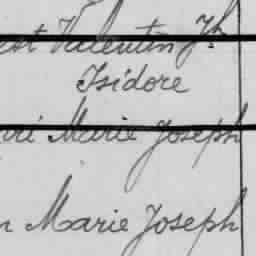 Valentin Jh
Isidore
Marie Joseph
Marie Joseph